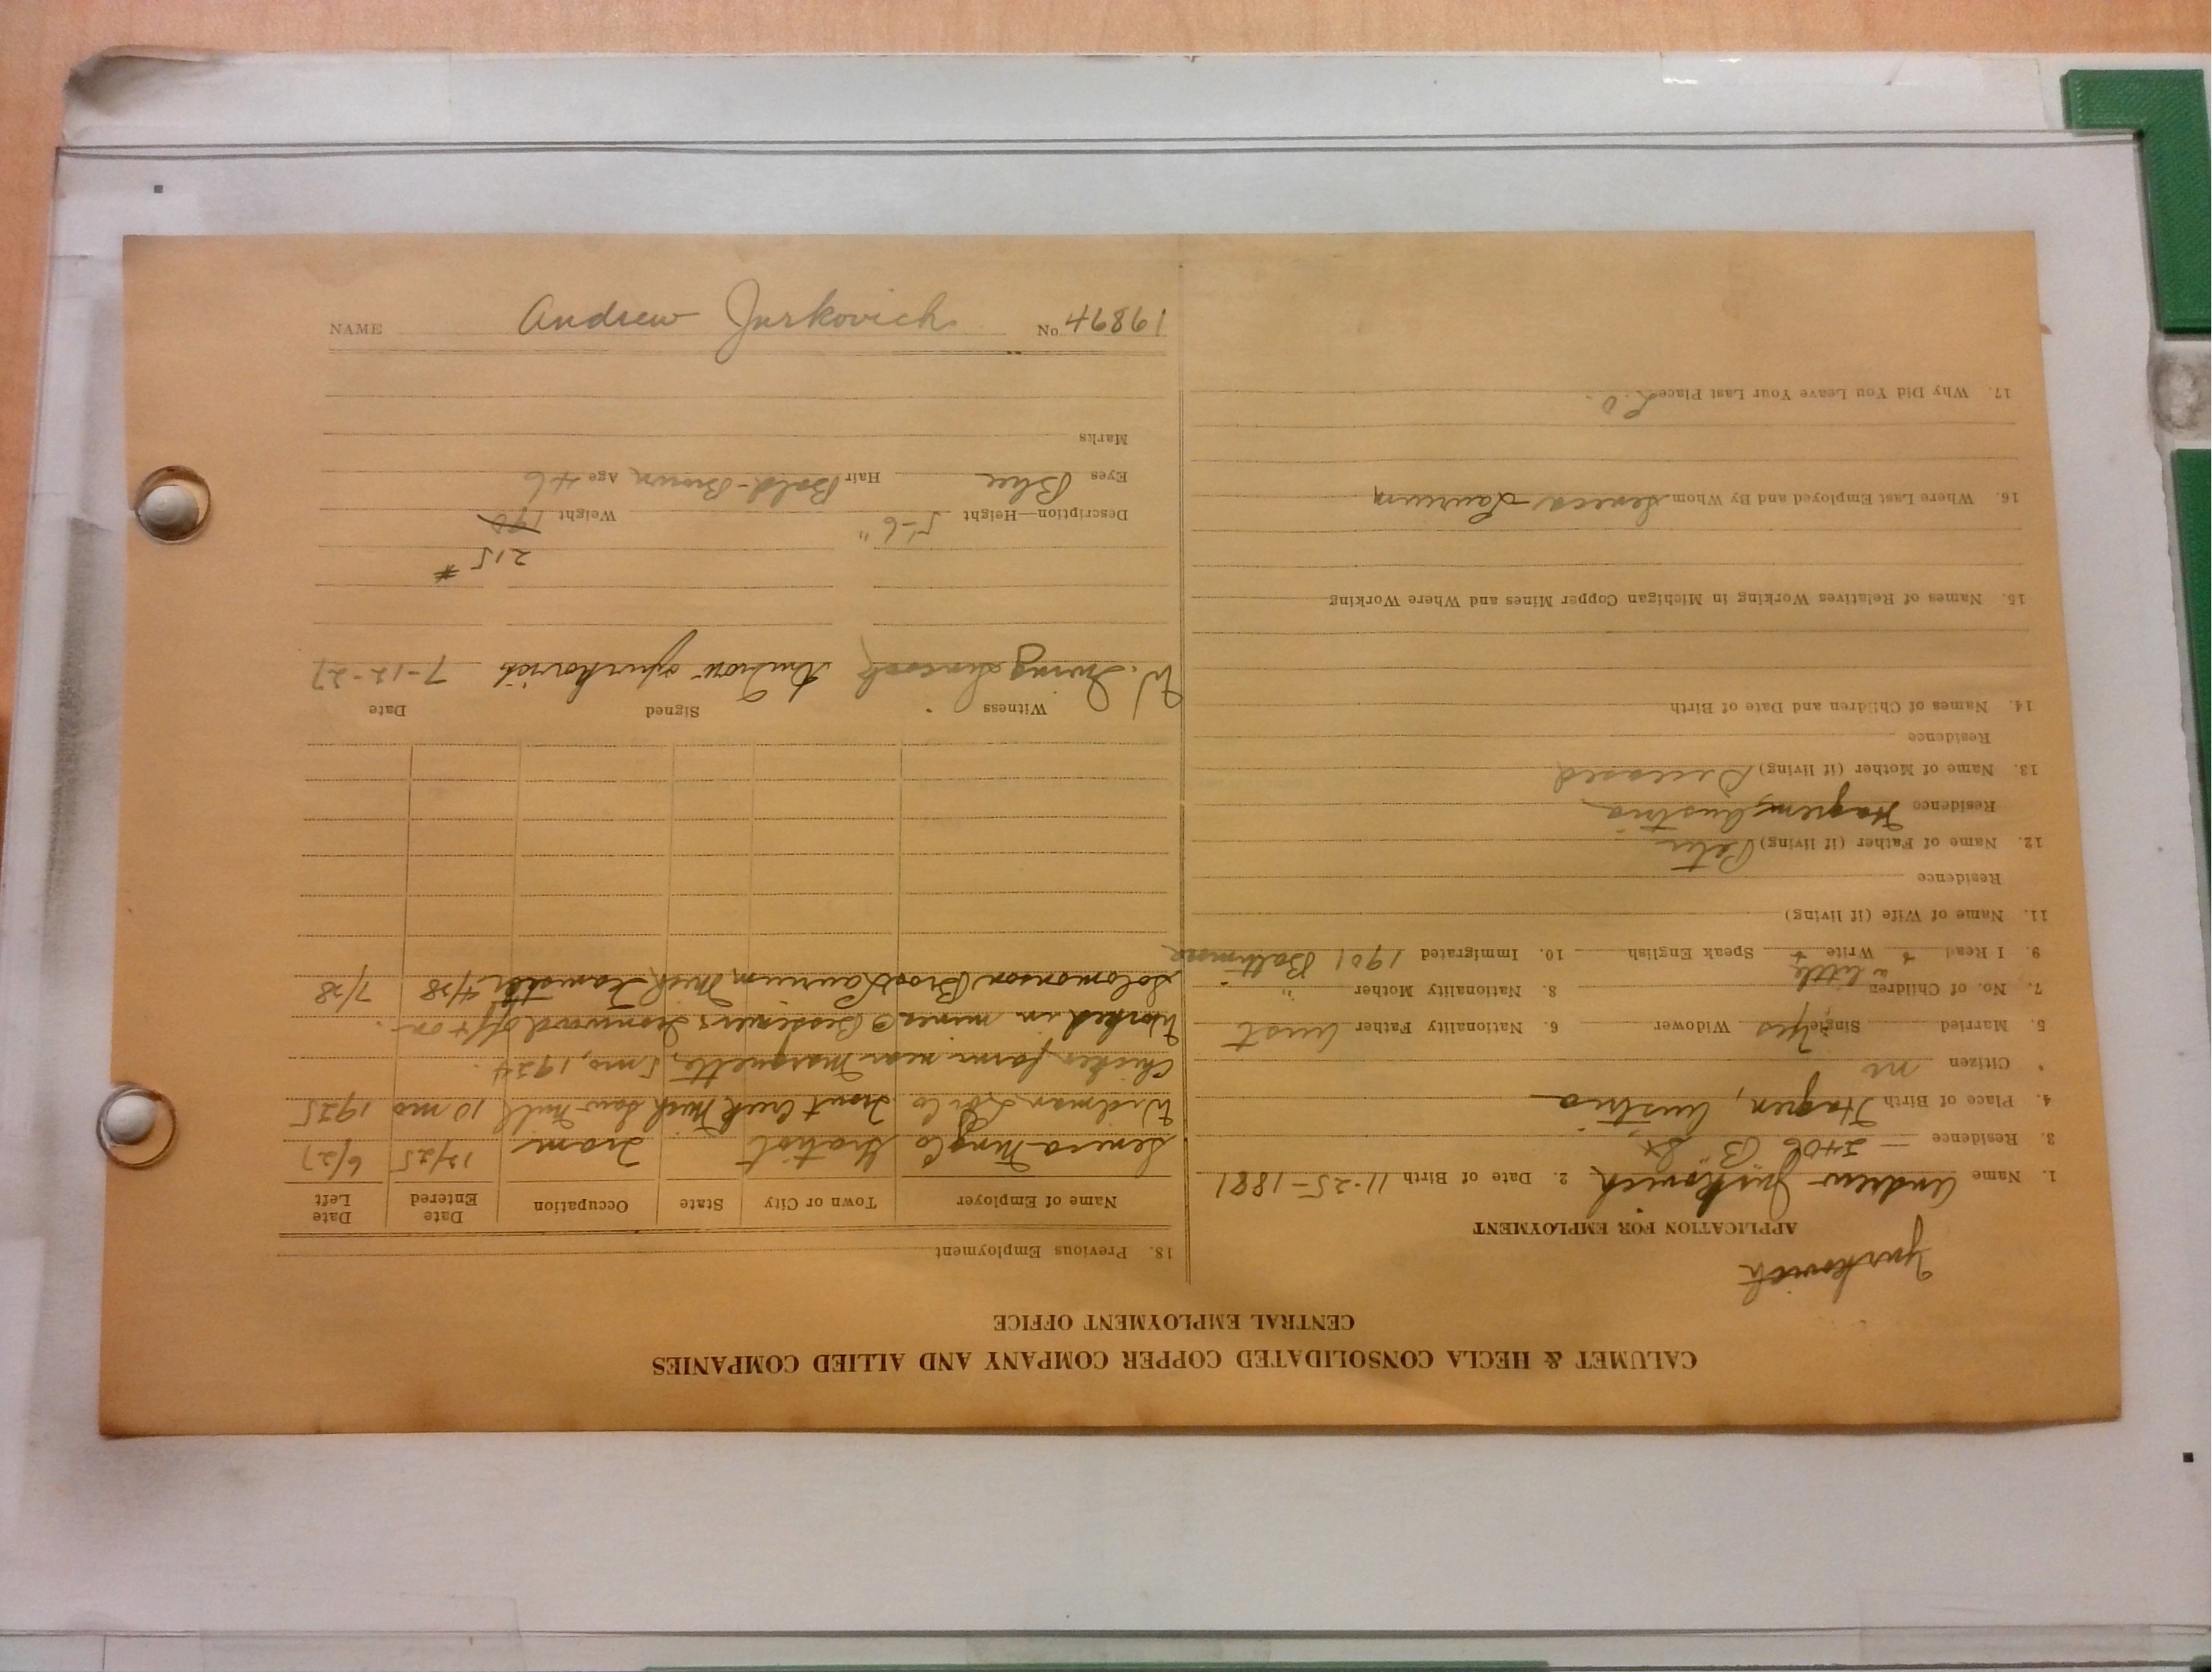 CALUMET & HECLA CONSOLIDATED COPPER COMPANY AND ALLIED COMPANIES
CENTRAL EMPLOYMENT OFFICE
Jurkovich
APPLICATION FOR EMPLOYMENT
1. Name Andrew Jurkovich 2. Date of Birth 11-25-1881
3. Residence 2406 "B" St
4. Place of Birth Hagren, Austria
Citizen no
5. Married Single Yes Widower 6. Nationality Father Aust
7. No. of Children 8. Nationality Mother "
a little
9. I Read + Write + Speak English 10. Immigrated 1901 Baltimore
11. Name of Wife (if living)
Residence
12. Name of Father (if living) Peter
Residence Hagren, Austria
13. Name of Mother (if living) Deceased
Residence
14. Names of Children and Date of Birth
15. Names of Relatives Working in Michigan Copper Mines and Where Working
16. Where Last Employed and By Whom Seneca Laurium
17. Why Did You Leave Your Last Place L.O.
18. Previous Employment
Name of Employer Town or City State Occupation Date Entered Date Left
Seneca Mng Co Gratiot Tram 12/25 6/27
Weidman Lbr Co Trout Creek Mich Saw Mill 10 mo 1925
Chicken farm near Marquette, 5 mo, 1924.
Worked in mines @ Bessemer & Ironwood off + on.
Solomonson Bros Laurium Mich 4/28 7/28
Witness Signed Date
W. Irving Andrew Jurkovich 7-12-27
215 #
Description—Height 5'-6" Weight 190
Eyes Blue Hair Bald-Brown Age 46
Marks
NAME Andrew Jurkovich No. 19874